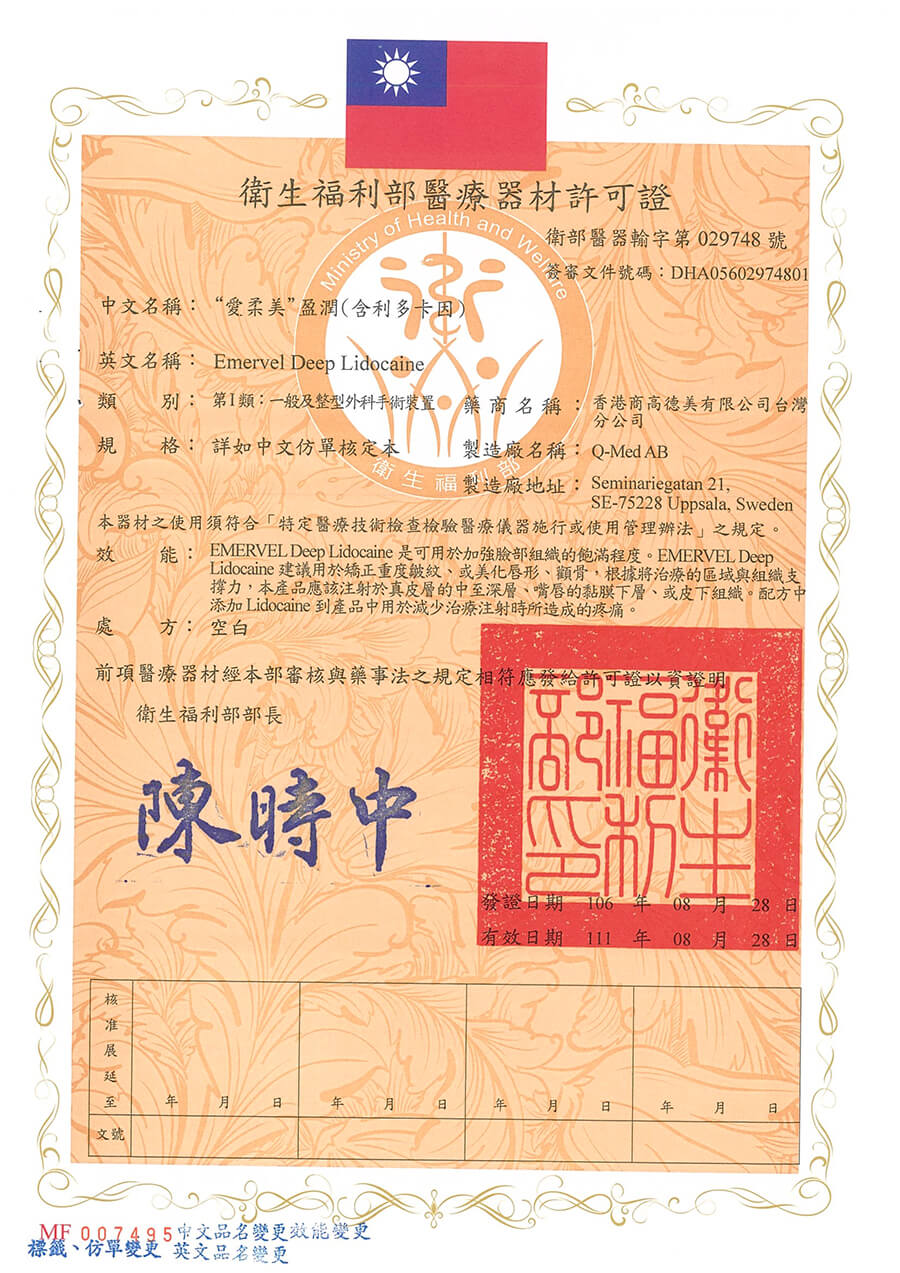 衛生福利部醫療器材許可證
Ministry of Health and Welfare
衛部醫器輸字第 029748 號
簽審文件號碼：DHA05602974801
中文名稱：“愛柔美”盈潤(含利多卡因)
英文名稱：Emervel Deep Lidocaine
類 別：第I類：一般及整型外科手術裝置 藥商名稱：香港商高德美有限公司台灣
分公司
規 格：詳如中文仿單核定本 製造廠名稱：Q-Med AB
衛生福利部
製造廠地址：Seminariegatan 21,
SE-75228 Uppsala, Sweden
本器材之使用須符合「特定醫療技術檢查檢驗醫療儀器施行或使用管理辦法」之規定。
效 能：EMERVEL Deep Lidocaine 是可用於加強臉部組織的飽滿程度。EMERVEL Deep
Lidocaine 建議用於矯正重度皺紋、或美化唇形、顴骨，根據將治療的區域與組織支
撐力，本產品應該注射於真皮層的中至深層、嘴唇的黏膜下層、或皮下組織。配方中
添加 Lidocaine 到產品中用於減少治療注射時所造成的疼痛。
處 方：空白
前項醫療器材經本部審核與藥事法之規定相符應發給許可證以資證明
衛生福利部部長
陳時中
衛生福利部印
發證日期 106 年 08 月 28 日
有效日期 111 年 08 月 28 日
核准展延至 年 月 日 年 月 日 年 月 日 年 月 日
文號
MF 007495 中文品名變更效能變更
標籤、仿單變更 英文品名變更